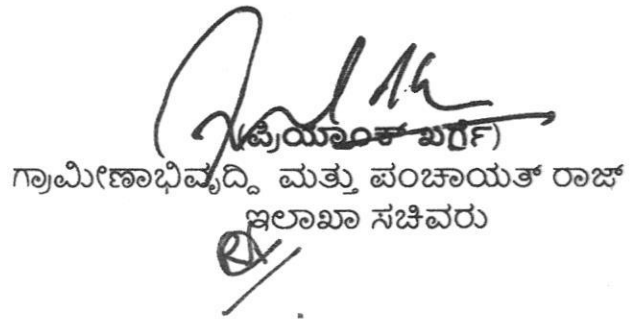 (ಪ್ರಿಯಾಂಕ್ ಖರ್ಗೆ)
ಗ್ರಾಮೀಣಾಭಿವೃದ್ದಿ ಮತ್ತು ಪಂಚಾಯತ್ ರಾಜ್
ಇಲಾಖಾ ಸಚಿವರು